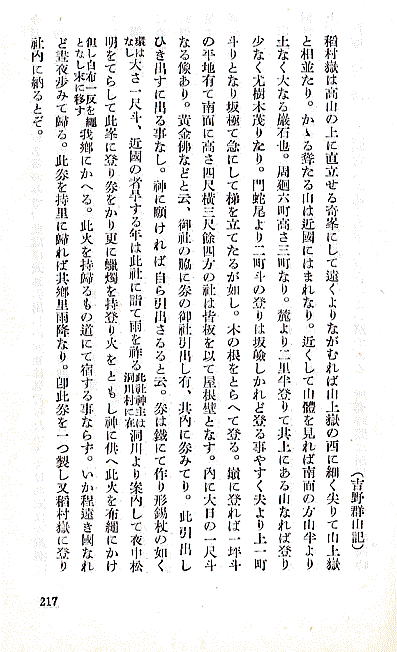 (吉野群山記)
稻村嶽は高山の上に直立せる奇峯にして遠くよりながむれば山上嶽の西に細く尖りて山上嶽
と相並たり。かゝる聳たる山は近國にはまれなり。近くして山體を見れば南面の方山半より
土なく大なる巖石也。周廻六町高さ三町なり。麓より二里半登りて其上にある山なれば登り
少なく尤樹木茂りたり。門蛇尾より二町斗の登りは坂嶮しかれど登る事やすく夫より上一町
斗りとなり坂極て急にして梯を立てたるが如し。木の根をとらへて登る。巓に登れば一坪斗
の平地有て南面に高さ四尺横三尺餘四方の社は皆板を以て屋根壁となす。内に大日の一尺斗
なる像あり。黄金佛などと云、御社の脇に劵の御社引出し有、其内に劵みてり。此引出し
ひき出すに出る事なし。神に願ければ自ら引出さるると云。劵は鐵にて作り形錫杖の如く
環は大さ一尺斗、近國の者旱する年は此社に詣て雨を祚る此社神主は洞川より案内して夜中松
なし 洞川村に在
明をてらして此峯に登り劵をかり更に蠟燭を持登り火をともし神に供へ此火を布繩にかけ
但し白布一反を繩我鄕にかへる。此火を持歸るもの道にて宿する事ならず。いか程遠き國なれ
となし末に移す
ど晝夜歩みて歸る。此劵を持里に歸れば其鄕里雨降なり。卽此劵を一つ製し又稻村嶽に登り
社内に納るとぞ。
217